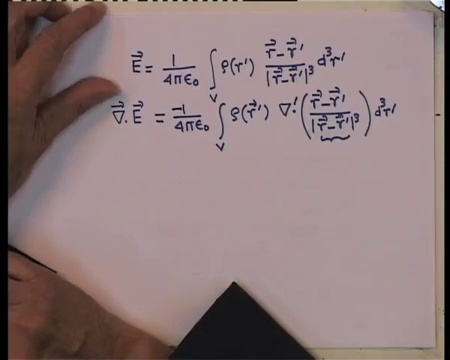 E⃗ = 1/4πε₀ ∫_V ρ(r') (r⃗ - r⃗')/|r⃗ - r⃗'|³ d³r'
∇⃗. E⃗ = -1/4πε₀ ∫_V ρ(r⃗') ∇'. ((r⃗ - r⃗')/|r⃗ - r⃗'|³) d³r'